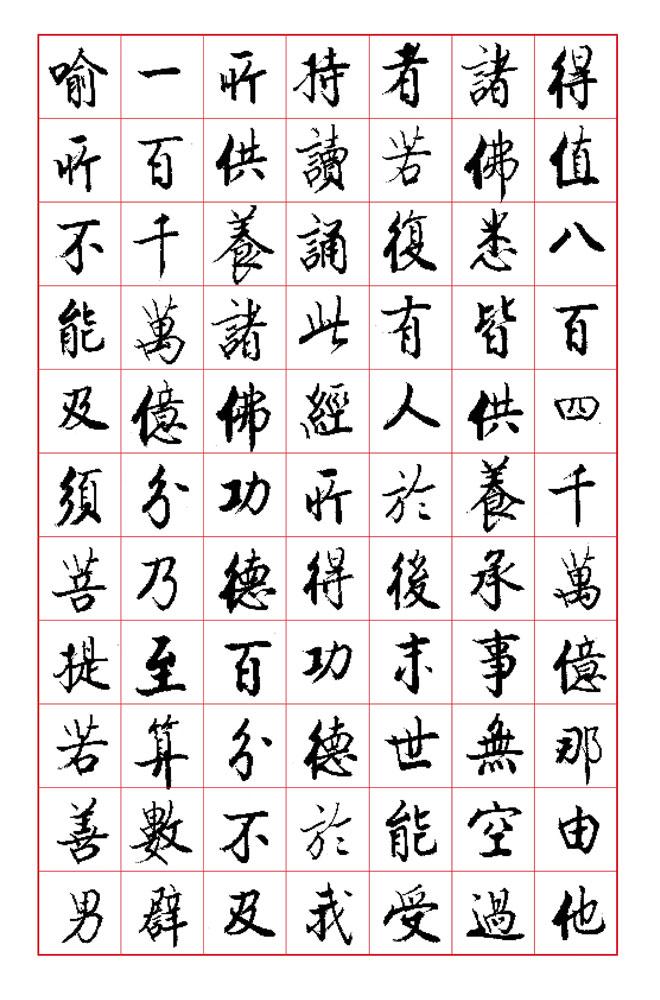 得值八百四千萬億那由他
諸佛悉皆供養承事無空過
者若復有人於後末世能受
持讀誦此經所得功德於我
所供養諸佛功德百分不及
一百千萬億分乃至算數譬
喻所不能及須菩提若善男